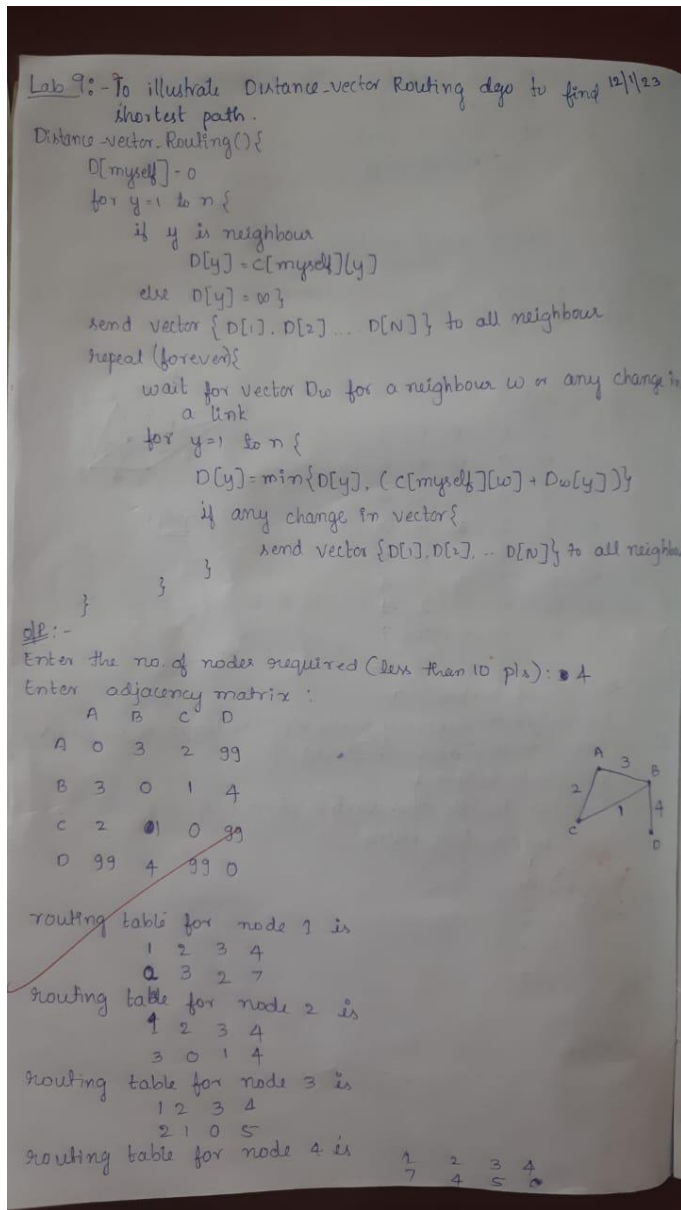 Lab 9:- To illustrate Distance-vector Routing algo to find 12/1/23
shortest path.
Distance-vector-Routing(){
D[myself] = 0
for y=1 to n {
if y is neighbour
D[y] = c[myself][y]
else D[y] = ∞}
send vector {D[1], D[2] ... D[N]} to all neighbour
repeat (forever){
wait for vector Dw for a neighbour w or any change in
a link
for y=1 to n {
D[y] = min{D[y], (c[myself][w] + Dw[y])}
if any change in vector{
send vector {D[1], D[2], .. D[N]} to all neighbou
}
}
}
o/p:-
Enter the no. of nodes required (less than 10 pls): 4
Enter adjacency matrix :
A B C D
A 0 3 2 99
B 3 0 1 4
C 2 1 0 99
D 99 4 99 0
A 3 B
2 1 4
C D
routing table for node 1 is
1 2 3 4
0 3 2 7
routing table for node 2 is
1 2 3 4
3 0 1 4
routing table for node 3 is
1 2 3 4
2 1 0 5
routing table for node 4 is 1 2 3 4
7 4 5 0